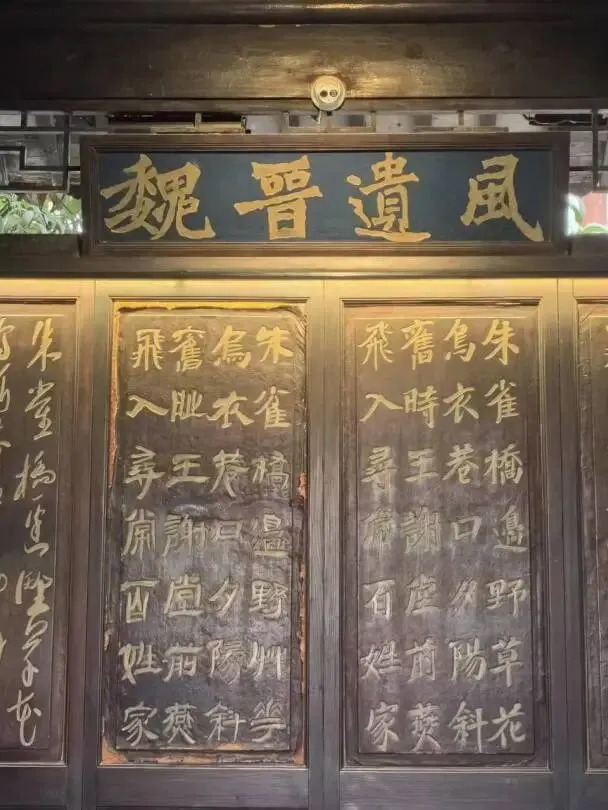 魏晉遺風
朱雀橋邊野草花
烏衣巷口夕陽斜
舊時王謝堂前燕
飛入尋常百姓家
朱雀橋邊野艸華
烏衣巷口夕陽斜
舊時王謝堂前燕
飛入尋常百姓家
朱雀橋邊野草花